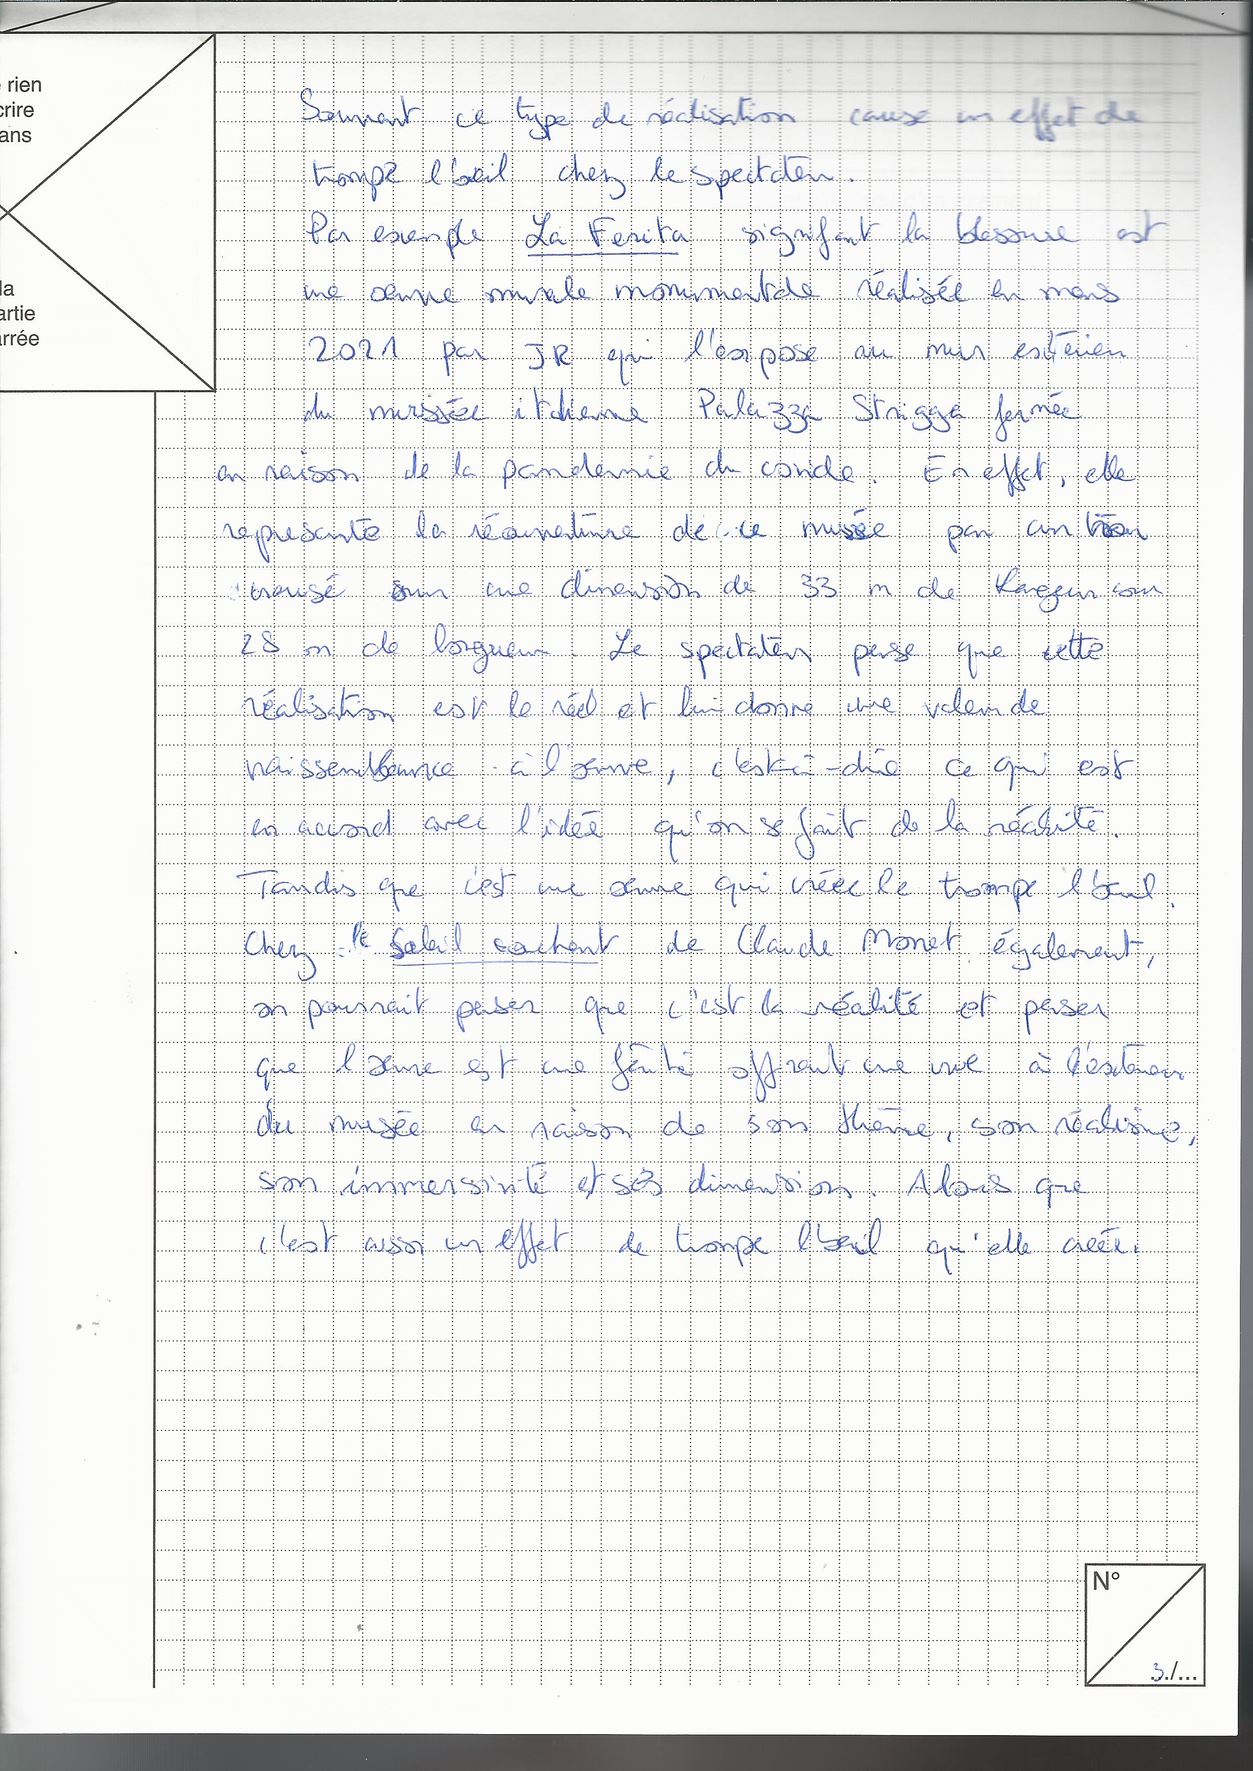 rien
crire
ans
la
artie
rrée
Souvent ce type de réalisation cause un effet de
trompe l'œil chez le spectateur.
Par exemple La Ferita signifant la blessure est
une œuvre murale monumentale réalisée en mars
2021 par JR qui l'expose au mur extérieur
du mussée italienne Palazza Strigga fermée
en raison de la pandemie du covide. En effet, elle
represante la réouverture de ce musée par un
creusé sur une dimension de 33 m de largeur sur
28 m de longueur. Le spectateur pense que cette
réalisation est le réel et lui donne une valeur de
vraissemblance à l'œuvre, c'est-à-dire ce qui est
en accord avec l'idée qu'on se fait de la réalité.
Tandis que c'est une œuvre qui créee le trompe l'œil.
Chez le Soleil couchant de Claude Monet également,
on pourrait penser que c'est la réalité et penser
que l'œuvre est une fênte offrant une vue à l'extérieur
du musée en raison de son thème, son réalisme,
son immersivité et ses dimension. Alors que
c'est aussi un effet de trompe l'œil qu'elle créée.
N°
3./...